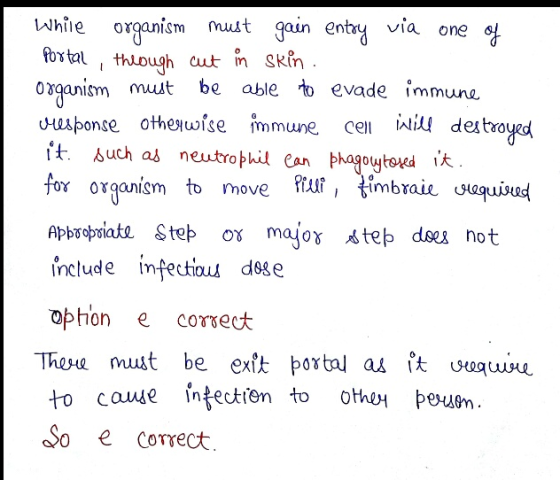 While organism must gain entry via one of
Portal, through cut in skin.
organism must be able to evade immune
response otherwise immune cell will destroyed
it. such as neutrophil can phagocytosed it.
for organism to move Pilli, fimbraie required
Appropriate step or major step does not
include infectious dose
option e correct
There must be exit portal as it require
to cause infection to other person.
So e correct.